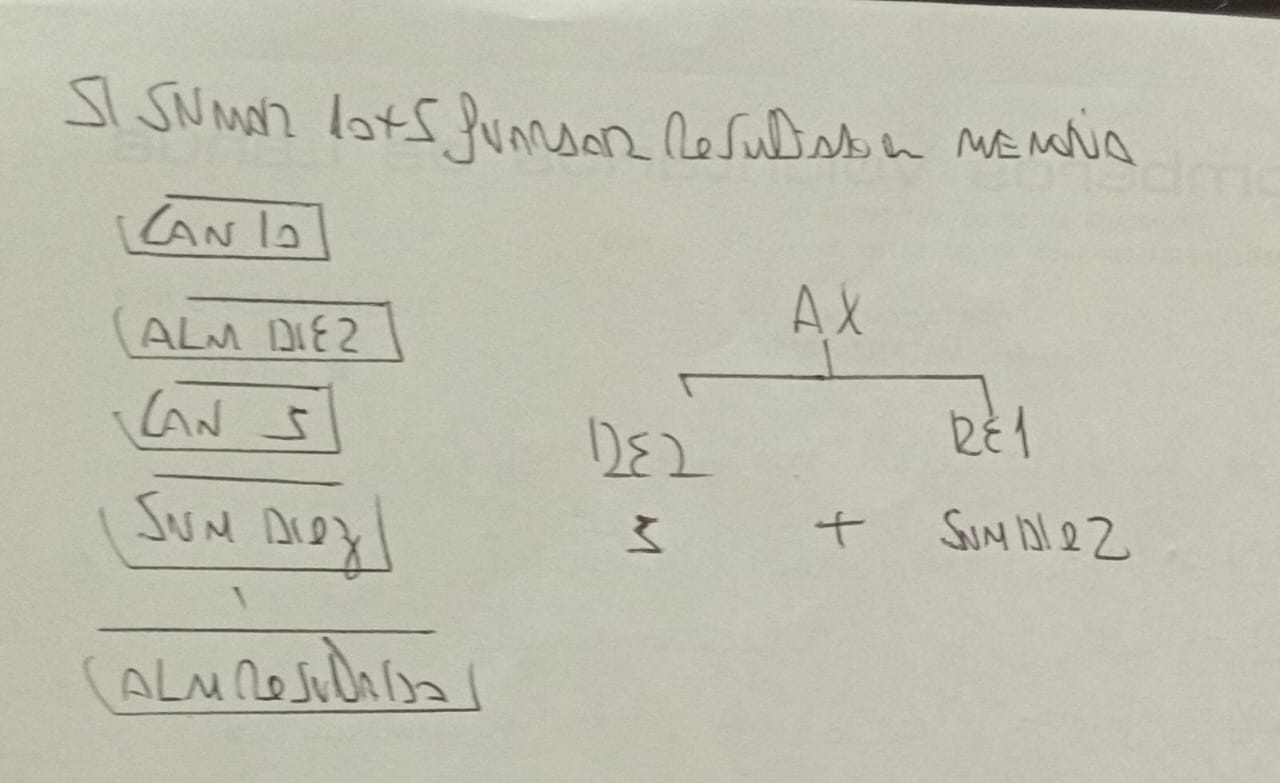 SI SUMAR 10+5 guardar Resultado en MEMORIA
CAR 10
ALM DIEZ
CAR 5
SUM DIEZ
ALM Resultado
AX
RE2 RE1
5 + SUM DIEZ